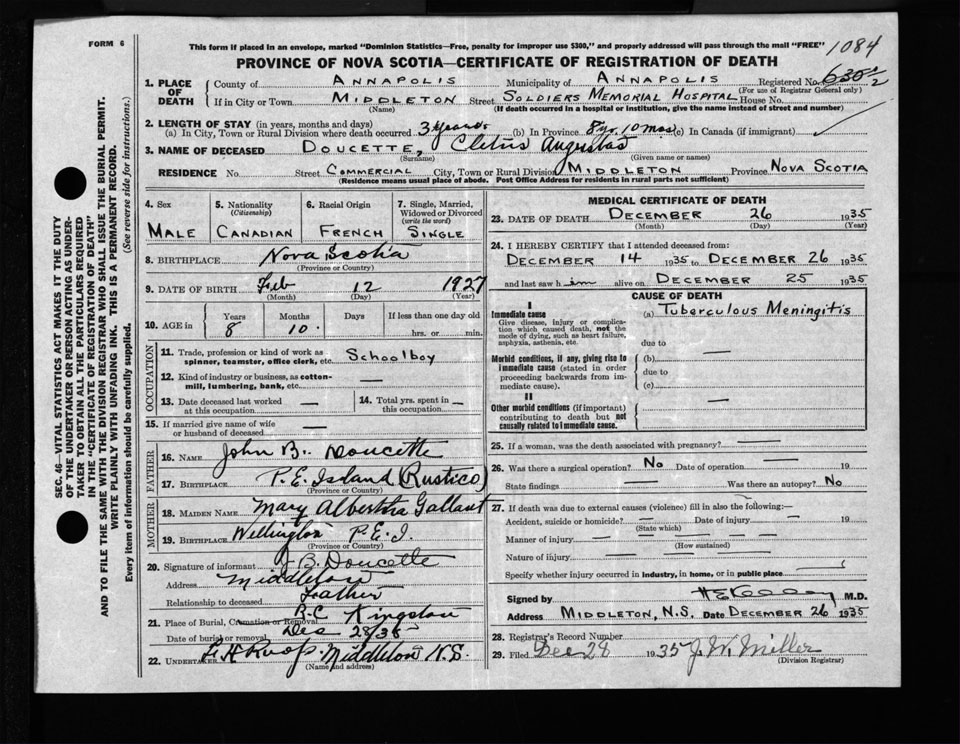 FORM 6
This form if placed in an envelope, marked "Dominion Statistics—Free, penalty for improper use $300," and properly addressed will pass through the mail "FREE"
1084
PROVINCE OF NOVA SCOTIA—CERTIFICATE OF REGISTRATION OF DEATH
1. PLACE OF DEATH
County of ANNAPOLIS Municipality of ANNAPOLIS Registered No.
(For use of Registrar General only)
If in City or Town MIDDLETON Street SOLDIERS MEMORIAL HOSPITAL House No.
(Name) (If death occurred in a hospital or institution, give the name instead of street and number)
2. LENGTH OF STAY (in years, months and days)
(a) In City, Town or Rural Division where death occurred 3 years (b) In Province 8 yr. 10 mos (c) In Canada (if immigrant)
3. NAME OF DECEASED DOUCETTE, Cletus Augustas
(Surname) (Given name or names)
RESIDENCE No. Street COMMERCIAL City, Town or Rural Division MIDDLETON Province NOVA SCOTIA
(Residence means usual place of abode. Post Office Address for residents in rural parts not sufficient)
4. Sex
MALE
5. Nationality
(Citizenship)
CANADIAN
6. Racial Origin
FRENCH
7. Single, Married, Widowed or Divorced
(write the word)
SINGLE
8. BIRTHPLACE Nova Scotia
(Province or Country)
9. DATE OF BIRTH Feb 12 1927
(Month) (Day) (Year)
10. AGE in Years Months Days If less than one day old
8 10 hrs. or min.
OCCUPATION
11. Trade, profession or kind of work as spinner, teamster, office clerk, etc. Schoolboy
12. Kind of industry or business, as cotton-mill, lumbering, bank, etc. —
13. Date deceased last worked at this occupation —
14. Total yrs. spent in this occupation —
15. If married give name of wife or husband of deceased —
FATHER
16. NAME John B. Doucette
17. BIRTHPLACE P.E. Island (Rustico)
(Province or Country)
MOTHER
18. MAIDEN NAME Mary Albertha Gallant
19. BIRTHPLACE Wellington P.E.I.
(Province or Country)
20. Signature of informant J B. Doucette
Address Middleton
Relationship to deceased Father
21. Place of Burial, Cremation or Removal R.C. Kingston
Date of burial or removal Dec 28/35
22. UNDERTAKER Middleton N.S.
(Name and address)
MEDICAL CERTIFICATE OF DEATH
23. DATE OF DEATH DECEMBER 26 1935
(Month) (Day) (Year)
24. I HEREBY CERTIFY that I attended deceased from:
DECEMBER 14 1935 to DECEMBER 26 1935
and last saw him alive on DECEMBER 25 1935
CAUSE OF DEATH
I
Immediate cause
Give disease, injury or complication which caused death, not the mode of dying, such as heart failure, asphyxia, asthenia, etc.
(a) Tuberculous Meningitis
due to
Morbid conditions, if any, giving rise to immediate cause (stated in order proceeding backwards from immediate cause).
(b) —
due to
(c)
II
Other morbid conditions (if important) contributing to death but not causally related to immediate cause.
—
25. If a woman, was the death associated with pregnancy? —
26. Was there a surgical operation? No Date of operation — 19
State findings — Was there an autopsy? No
27. If death was due to external causes (violence) fill in also the following:—
Accident, suicide or homicide? — Date of injury — 19
(State which)
Manner of injury — —
(How sustained)
Nature of injury —
Specify whether injury occurred in industry, in home, or in public place
Signed by M.D.
Address MIDDLETON, N.S. Date DECEMBER 26 1935
28. Registrar's Record Number
29. Filed Dec 28 1935 J. W. Miller
(Division Registrar)
SEC. 46—VITAL STATISTICS ACT MAKES IT THE DUTY OF THE UNDERTAKER OR PERSON ACTING AS UNDERTAKER TO OBTAIN ALL THE PARTICULARS REQUIRED IN THE "CERTIFICATE OF REGISTRATION OF DEATH" AND TO FILE THE SAME WITH THE DIVISION REGISTRAR WHO SHALL ISSUE THE BURIAL PERMIT.
WRITE PLAINLY WITH UNFADING INK. THIS IS A PERMANENT RECORD.
Every item of information should be carefully supplied. (See reverse side for instructions.)